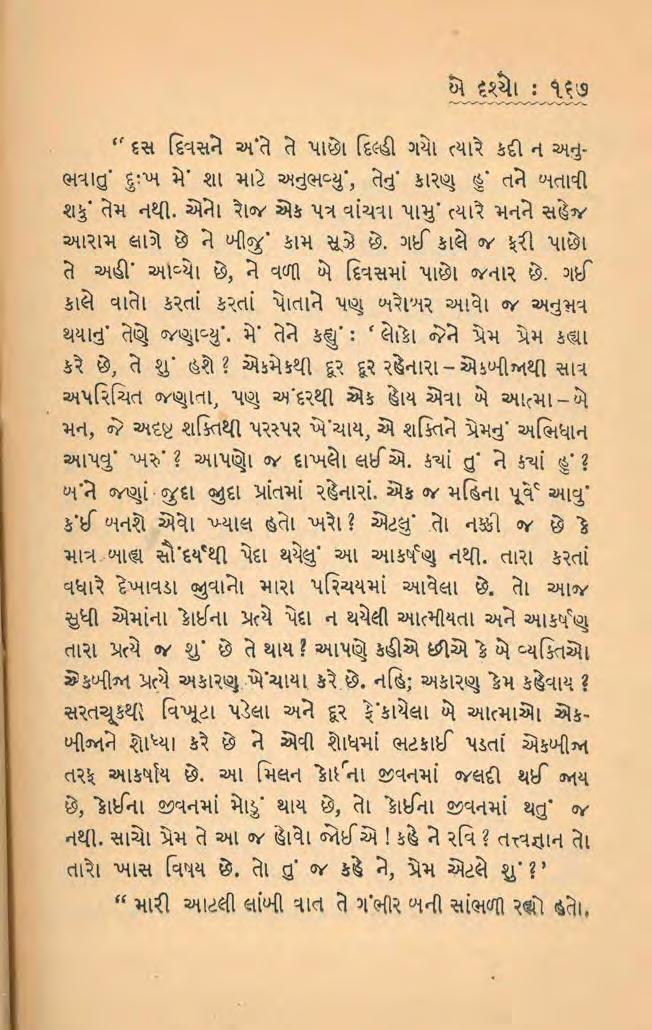 બે દૃશ્યો : ૧૬૭
“ દસ દિવસને અંતે તે પાછો દિલ્હી ગયો ત્યારે કદી ન અનુ-
ભવાતું દુઃખ મેં શા માટે અનુભવ્યું, તેનું કારણ હું તને બતાવી
શકું તેમ નથી. એનો રોજ એક પત્ર વાંચવા પામું ત્યારે મનને સહેજ
આરામ લાગે છે ને બીજું કામ સૂઝે છે. ગઈ કાલે જ ફરી પાછો
તે અહીં આવ્યો છે, ને વળી બે દિવસમાં પાછો જનાર છે. ગઈ
કાલે વાતો કરતાં કરતાં પોતાને પણ બરોબર આવો જ અનુભવ
થયાનું તેણે જણાવ્યું. મેં તેને કહ્યું : ‘ લોકો જેને પ્રેમ પ્રેમ કહ્યા
કરે છે, તે શું હશે ? એકમેકથી દૂર દૂર રહેનારા – એકબીજાથી સાવ
અપરિચિત જણાતા, પણ અંદરથી એક હોય એવા બે આત્મા – બે
મન, જે અદૃષ્ટ શક્તિથી પરસ્પર ખેંચાય, એ શક્તિને પ્રેમનું અભિધાન
આપવું ખરું ? આપણો જ દાખલો લઈએ. ક્યાં તું ને ક્યાં હું ?
બંને જણાં જુદા જુદા પ્રાંતમાં રહેનારાં. એક જ મહિના પૂર્વે આવું
કંઈ બનશે એવો ખ્યાલ હતો ખરો ? એટલું તો નક્કી જ છે કે
માત્ર બાહ્ય સૌંદર્યથી પેદા થયેલું આ આકર્ષણ નથી. તારા કરતાં
વધારે દેખાવડા જુવાનો મારા પરિચયમાં આવેલા છે. તો આજ
સુધી એમાંના કોઈના પ્રત્યે પેદા ન થયેલી આત્મીયતા અને આકર્ષણ
તારા પ્રત્યે જ શું છે તે થાય ? આપણે કહીએ છીએ કે બે વ્યક્તિઓ
એકબીજા પ્રત્યે અકારણ ખેંચાયા કરે છે. નહિ; અકારણ કેમ કહેવાય ?
સરતચૂકથી વિખૂટા પડેલા અને દૂર ફેંકાયેલા બે આત્માઓ એક-
બીજાને શોધ્યા કરે છે ને એવી શોધમાં ભટકાઈ પડતાં એકબીજા
તરફ આકર્ષાય છે. આ મિલન કોઈના જીવનમાં જલદી થઈ જાય
છે, કોઈના જીવનમાં મોડું થાય છે, તો કોઈના જીવનમાં થતું જ
નથી. સાચો પ્રેમ તે આ જ હોવો જોઈએ ! કહે ને રવિ ? તત્ત્વજ્ઞાન તો
તારો ખાસ વિષય છે. તો તું જ કહે ને, પ્રેમ એટલે શું ?’
“ મારી આટલી લાંબી વાત તે ગંભીર બની સાંભળી રહ્યો હતો.